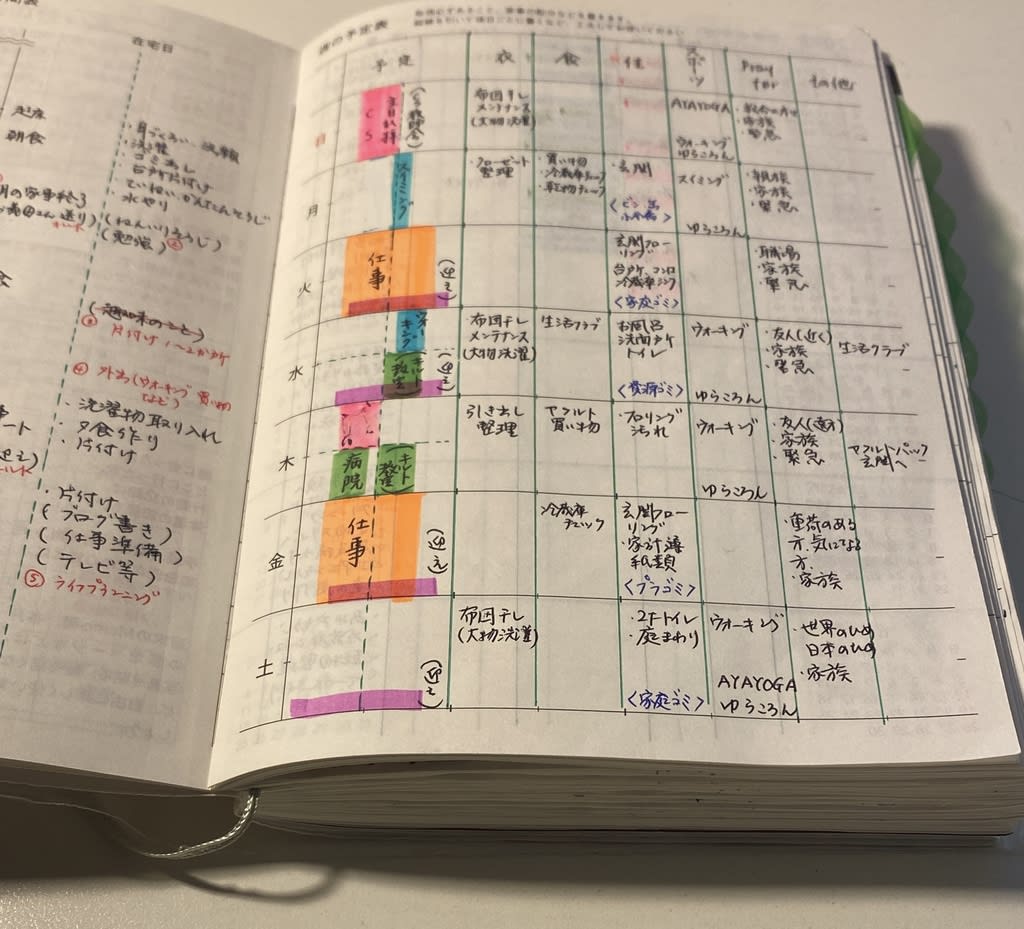 在宅日
起床
朝食
洗顔
・洗濯
・ゴミ出し
・台所片付け
・水やり
(ねんいりそうじ)
(勉強)②
(趣味のこと)
③ 片付け1〜2か所
④ 外出(ウォーキング 買い物
など)
・洗濯物取り入れ
・夕食作り
・片付け
・片付け
(ブログ書き)
(仕事準備)
(テレビ等)
⑤ ライフプランニング
週の予定表
予定
衣
食
住
スポーツ
Pray
for
その他
日
主日礼拝
CS
布団干し
メンテナンス
(大物洗濯)
AYAYOGA
ウォーキング
ゆらころん
・家族
・緊急
月
スイミング
・クローゼット
整理
・買い物
・冷蔵庫チェック
・乾物チェック
・玄関
スイミング
ゆらころん
・親族
・家族
・緊急
火
仕事
(迎え)
玄関フロー
リング
台所、コンロ
冷蔵庫シンク
<家庭ゴミ>
・職場
・家族
・緊急
水
ウォーキング
キルト
教室
(迎え)
布団干し
メンテナンス
(大物洗濯)
生活クラブ
お風呂
洗面所
トイレ
<資源ゴミ>
ウォーキング
ゆらころん
・友人(近く)
・家族
・緊急
生活クラブ
木
病院
キルト
教室
引き出し
整理
ヤクルト
買い物
フローリング
汚れ
ウォーキング
ゆらころん
・友人(遠方)
・家族
・緊急
ヤクルトパック
玄関へ
金
仕事
(迎え)
冷蔵庫
チェック
玄関フロー
リング
・家計簿
手紙類
<プラゴミ>
・重荷のある
方、気になる
方
・家族
土
(迎え)
布団干し
(大物洗濯)
・2Fトイレ
・庭まわり
<家庭ゴミ>
ウォーキング
AYAYOGA
ゆらころん
・世界のため
日本のため
・家族